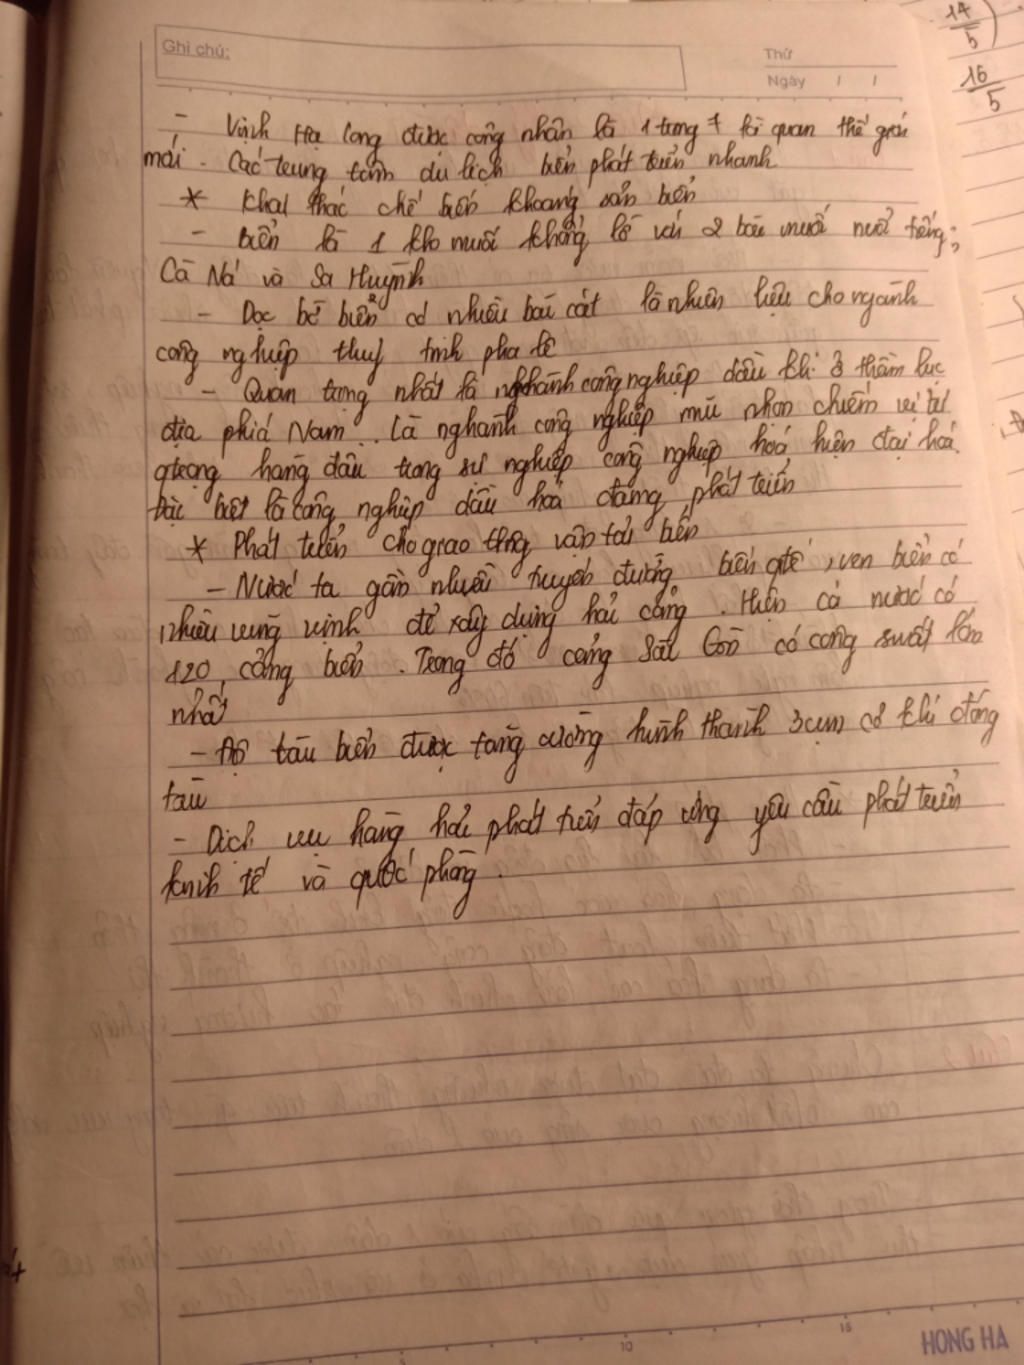 Ghi chú:
Thứ
Ngày / /
14/5)
16/5
- Vịnh Hạ Long được công nhân là 1 trong 7 kì quan thế giới
mới. Các trung tâm du lịch biển phát triển nhanh
* Khai thác chế biến khoang sản biển
- Biển là 1 kho muối khổng lồ với 2 bãi muối nuổi tiếng;
Cà Ná và Sa Huỳnh
- Dọc bờ biển có nhiều bãi cát là nhiên liệu cho ngành
công nghiệp thuỷ tinh pha lê
- Quan trọng nhất là nghành công nghiệp dầu khí ở thềm lục
địa phía Nam. Là nghành công nghiệp mũi nhọn chiếm vị trí
qtrọng hàng đầu trong sự nghiệp công nghiệp hoá, hiện đại hoá.
Đặc biệt là công nghiệp dầu hoá đang phát triển
* Phát triển cho giao thông vận tải biển
- Nước ta gần nhiều tuyến đường biển qtế, ven biển có
nhiều vũng vịnh để xây dựng hải cảng. Hiện cả nước có
120 cảng biển. Trong đó cảng Sài Gòn có công suất lớn
nhất
- Độ tàu biển được tăng cường hình thành 3 cụm cơ khí đóng
tàu
- Dịch vụ hàng hải phát triển đáp ứng yêu cầu phát triển
kinh tế và quốc phòng.
10
15
HONG HA